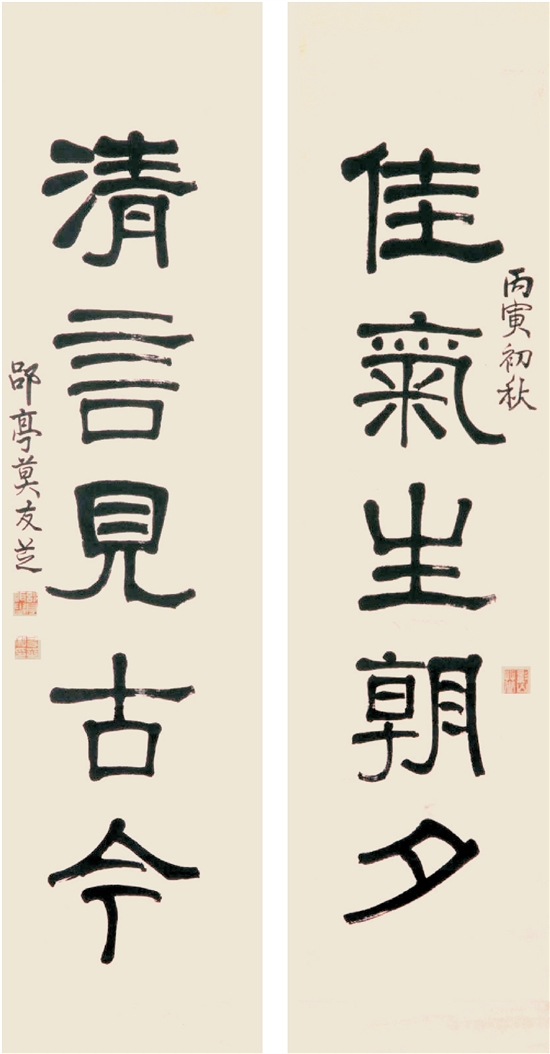 丙寅初秋
佳氣生朝夕
清言見古今
郘亭莫友芝